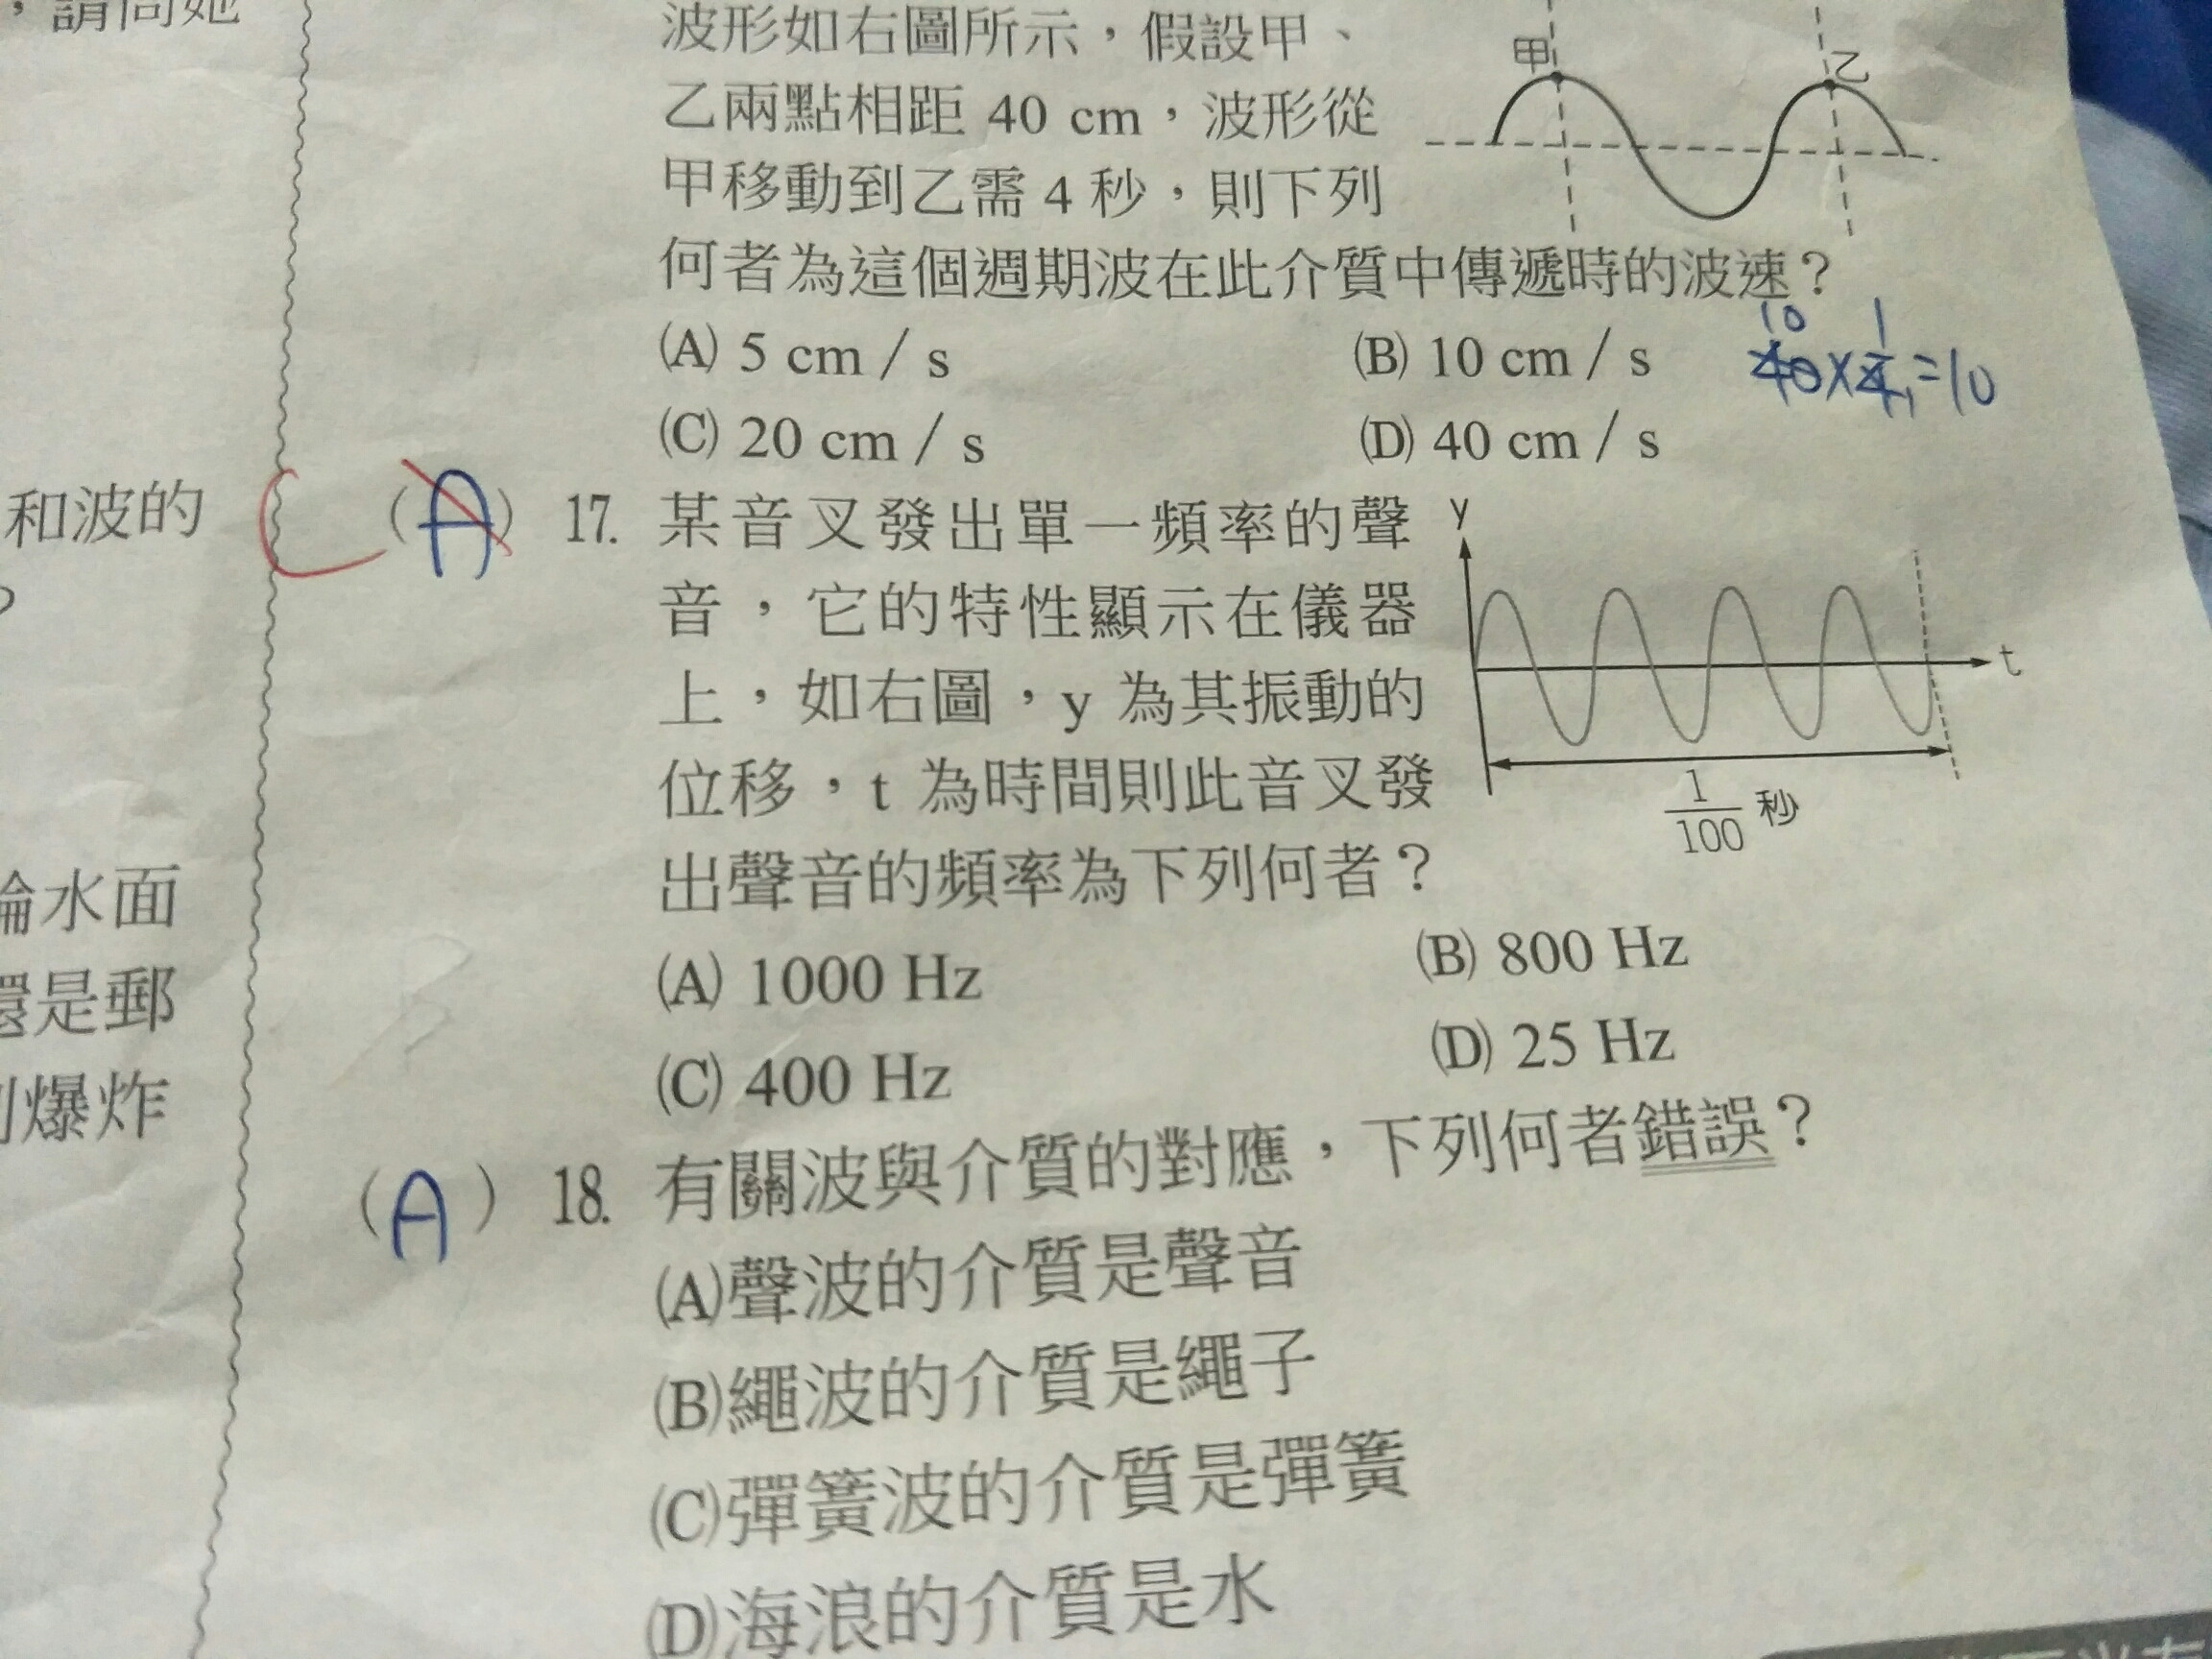 ，請問她
和波的
？
論水面
還是郵
爆炸
波形如右圖所示，假設甲、
乙兩點相距 40 cm，波形從
甲移動到乙需 4 秒，則下列
何者為這個週期波在此介質中傳遞時的波速？
(A) 5 cm / s (B) 10 cm / s
(C) 20 cm / s (D) 40 cm / s
甲 乙
10 1
40×1/4=10
(A) 17. 某音叉發出單一頻率的聲
音，它的特性顯示在儀器
上，如右圖，y 為其振動的
位移，t 為時間則此音叉發
出聲音的頻率為下列何者？
y
t
1/100 秒
(A) 1000 Hz (B) 800 Hz
(C) 400 Hz (D) 25 Hz
(A) 18. 有關波與介質的對應，下列何者錯誤？
(A)聲波的介質是聲音
(B)繩波的介質是繩子
(C)彈簧波的介質是彈簧
(D)海浪的介質是水